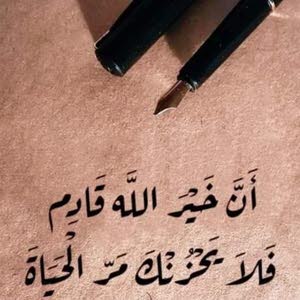 أَنَّ خَيْرَ اللَّه قَادِم
فَلَا يَحْزُنْكَ مَرّ الْحَيَاةَ